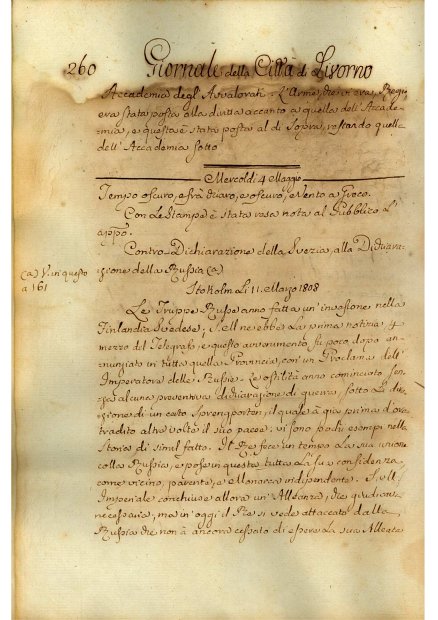 260 Giornale della Città di Livorno
Accademia degl' Avvalorati. L'Arme, che vi era, Regia
era stata posta alla diritta accanto a quella dell' Accade-
mia, e questa è stata posta al di Sopra, restando quella
dell' Accademia sotto
Mercoldì 4 Maggio
Tempo oscuro, e frà chiaro, e oscuro, e Vento a
Con Le Stampe è stata resa nota al Pubblico L'
appo.
Contro-Dichiarazione della Svezia, alla Dichiara-
zione della Russia (a)
(a) V. in questo
a 161
Stokolm Li 11. Marzo 1808
Le Truppe Russe anno fatta un' invasione nella
Finlandia Svedese; S. M. ne ebbe La prima notizia, p
mezzo del Telegrafo, e questo avvenimento fu poco dopo an-
nunziato in tutta quella Provincia, con un Proclama dell'
Imperatore delle Russie. Le ostilità anno cominciato sen-
za alcuna preventiva dichiarazione di guerra, sotto La dire-
zione di un certo Sprengporten, il quale à già prima d'ora
tradito altre volte il suo paese; vi sono pochi esempi nella
Storia di simil fatto. Il Re fece un tempo La sua unione
colla Russia, e pose in questa tutta La sua confidenza,
come vicino, parente, e Monarca indipendente. S. M.
Imperiale concluse allora un' Alleanza, che giudicava
necessaria, ma in oggi il Re si vede attaccato dalla
Russia che non à ancora cessato di essere La sua Alleata